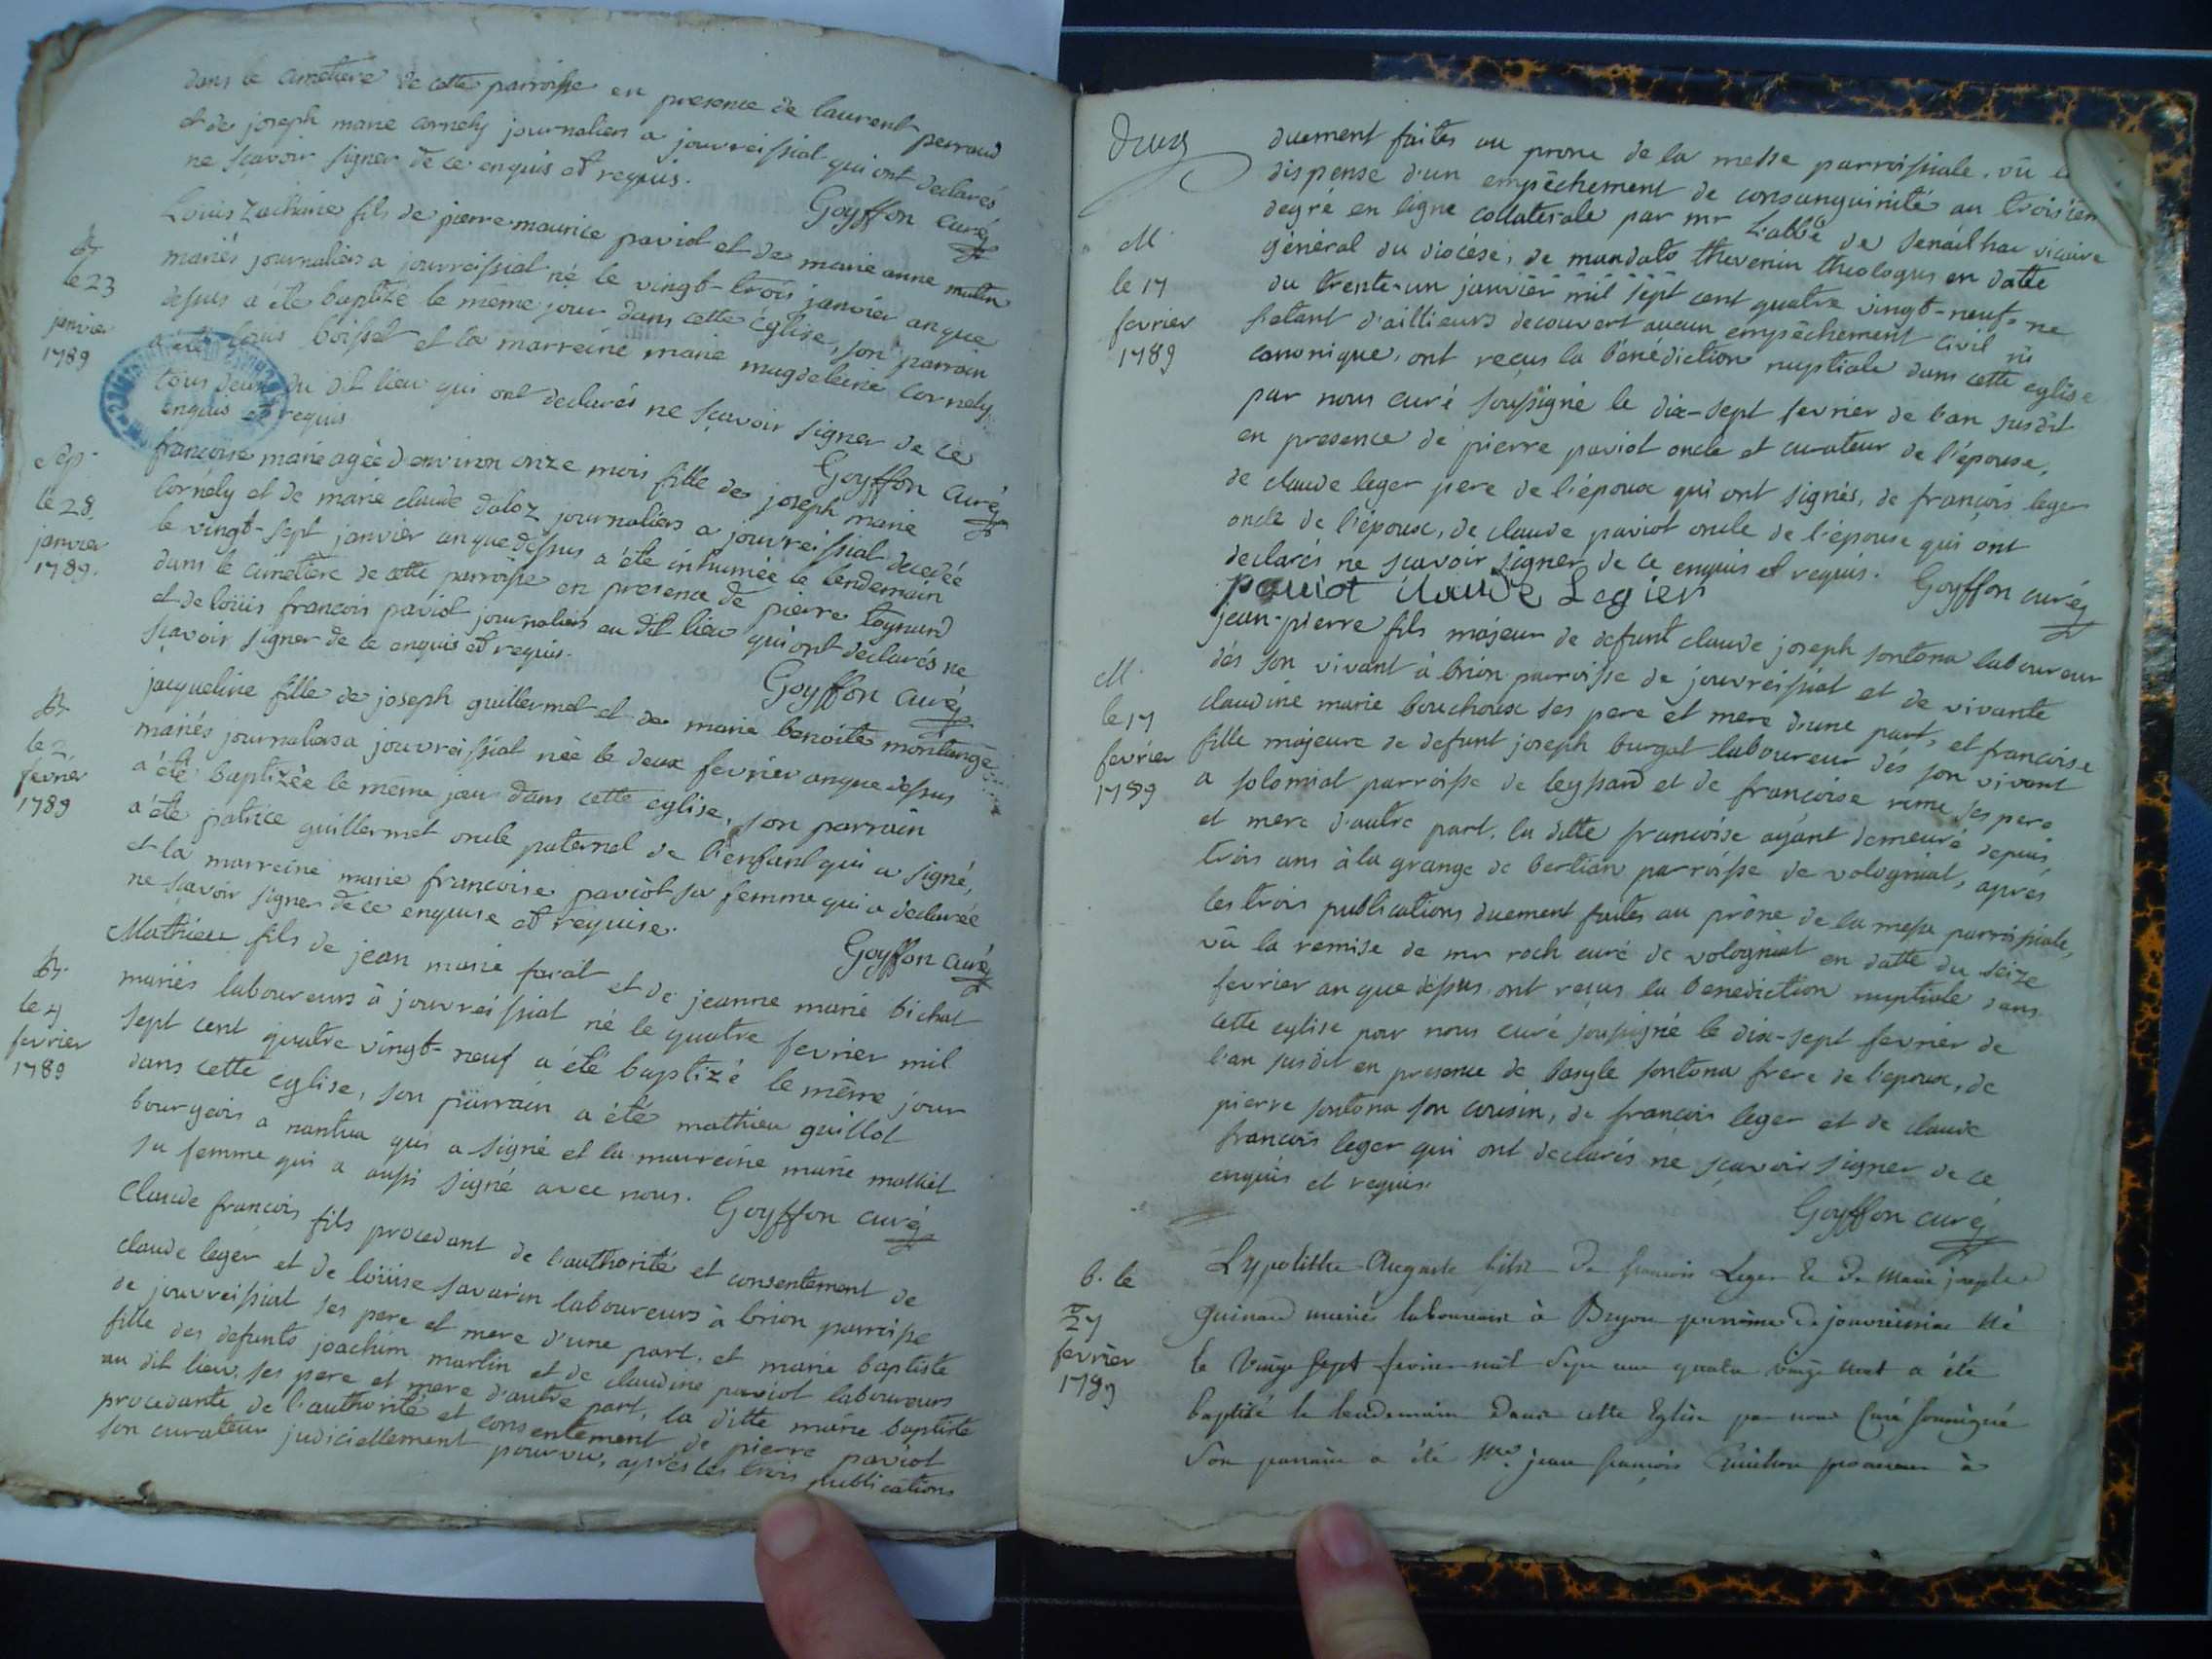 dans le cimetiere de cette parroisse en presence de laurent perraud
et de joseph marie cornely journaliers a jouvreissiat qui ont declarés
ne sçavoir signer de ce enquis et requis.
Goyffon curé
B.
le 23
janvier
1789
Louis Zacharie fils de pierre maurice paviot et de marie anne mutin
mariés journaliers a jouvreissiat né le vingt-trois janvier an que
dessus a été baptizé le même jour dans cette église, son parrain
a été louis boisset et la marreine marie magdeleine cornely
tous deux du dit lieu qui ont declarés ne sçavoir signer de ce
enquis et requis
Goyffon curé
Sep.
le 28.
janvier
1789.
francoise marie agée d'environ onze mois fille de joseph marie
cornely et de marie claude daloz journaliers a jouvreissiat decedée
le vingt-sept janvier an que dessus a été inhumée le lendemain
dans le cimetiere de cette parroisse en presence de pierre tognard
et de loüis francois paviot journaliers au dit lieu qui ont declarés ne
sçavoir signer de ce enquis et requis.
Goyffon curé
B.
le 2
fevrier
1789
jacqueline fille de joseph guillermet et de marie benoite montange
mariés journaliers a jouvreissiat née le deux fevrier an que dessus
a été baptizée le même jour dans cette eglise, son parrain
a été patrice guillermet oncle paternel de l'enfant qui a signé,
et la marreine marie francoise paviot sa femme qui a declarée
ne sçavoir signer de ce enquise et requise.
Goyffon curé
B.
le 4
fevrier
1789
Mathieu fils de jean marie favat et de jeanne marie bichat
mariés laboureurs à jouvreissiat né le quatre fevrier mil
sept cent quatre vingt-neuf a été baptizé le même jour
dans cette eglise, son parrain a été mathieu guillot
bourgeois a nantua qui a signé et la marreine marie molliet
sa femme qui a aussi signé avec nous.
Goyffon curé
Claude francois fils procedant de l'authorité et consentement de
claude leger et de loüise savarin laboureurs à brion parroisse
de jouvreissiat ses pere et mere d'une part, et marie baptiste
fille des defunts joachim martin et de claudine paviot laboureurs
au dit lieu, ses pere et mere d'autre part, la ditte marie baptiste
procedante de l'authorité et consentement de pierre paviot
son curateur judiciellement pourvu, après les trois publications
M.
le 17
fevrier
1789
duement faites au prone de la messe parroissiale, vû la
dispense d'un empêchement de consanguinité au troisiem
degré en ligne collaterale par mr L'abbé de Senailhac vicaire
général du diocése, de mandato thevenin theologus en datte
du trente-un janvier mil sept cent quatre vingt-neuf ne
s'etant d'aillieurs decouvert aucun empêchement civil ni
canonique, ont reçus la bénédiction nuptiale dans cette eglise
par nous curé soussigné le dix-sept fevrier de l'an susdit
en presence de pierre paviot oncle et curateur de l'épouse,
de claude leger pere de l'époux qui ont signés, de françois leger
oncle de l'époux, de claude paviot oncle de l'épouse qui ont
declarés ne sçavoir signer de ce enquis et requis.
Goyffon curé
paviot claude Legier
M.
le 17
fevrier
1789
jean-pierre fils majeur de defunt claude joseph sontona laboureur
dés son vivant à brion parroisse de jouvreissiat et de vivante
claudine marie bouchoux ses pere et mere d'une part, et francoise
fille majeure de defunt joseph burgat laboureur dés son vivant
a solomiat parroisse de leyssard et de françoise rime ses pere
et mere d'autre part, la ditte francoise ayant demeuré depuis
trois ans à la grange de bertian parroisse de volognat, après
les trois publications duement faites au prône de la messe parroissiale,
vû la remise de mr roch curé de volognat en datte du seize
fevrier an que dessus, ont reçus la benediction nuptiale dans
cette eglise par nous curé soussigné le dix-sept fevrier de
l'an susdit en presence de basyle sontona frere de l'epoux, de
pierre sontona son cousin, de françois leger et de claude
francois leger qui ont declarés ne sçavoir signer de ce
enquis et requis.
Goyffon curé
b. le
27
fevrier
1789
hypolithe Auguste fils de francois Leger et de Marie joseph
guinard mariés laboureurs à Bryon parroisse de jouvreissiac né
le vingt sept fevrier mil sept cent quatre vingt neuf a été
baptisé le lendemain dans cette Eglise par nous Curé soussigné
Son parrain a été Mr jean françois procureur à